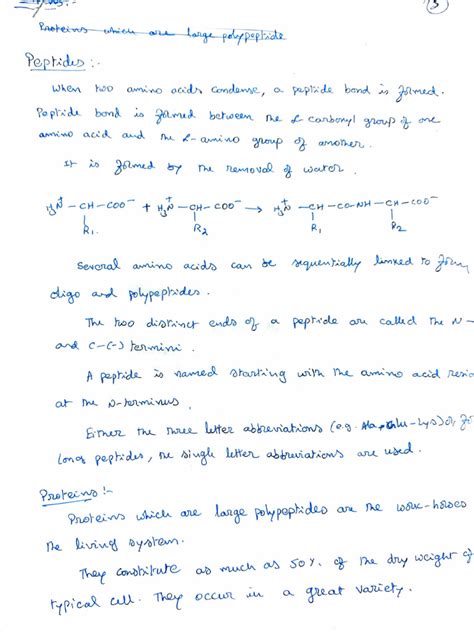 3
Proteins which are large polypeptide
Peptides :-
When two amino acids condense, a peptide bond is formed.
Peptide bond is formed between the α carbonyl group of one
amino acid and the α-amino group of another.
It is formed by the removal of water.
H₃N⁺-CH-COO⁻ + H₃N⁺-CH-COO⁻ → H₃N⁺-CH-CO-NH-CH-COO⁻
R₁ R₂ R₁ R₂
Several amino acids can be sequentially linked to form
oligo and polypeptides.
The two distinct ends of a peptide are called the N-
and C-(-) termini.
A peptide is named starting with the amino acid resi
at the N-terminus.
Either the three letter abbreviations (e.g. Ala-Glu-Lys) or, fo
long peptides, the single letter abbreviations are used.
Proteins :-
Proteins which are large polypeptides are the work-horses
the living system.
They constitute as much as 50% of the dry weight of
typical cell. They occur in a great variety.